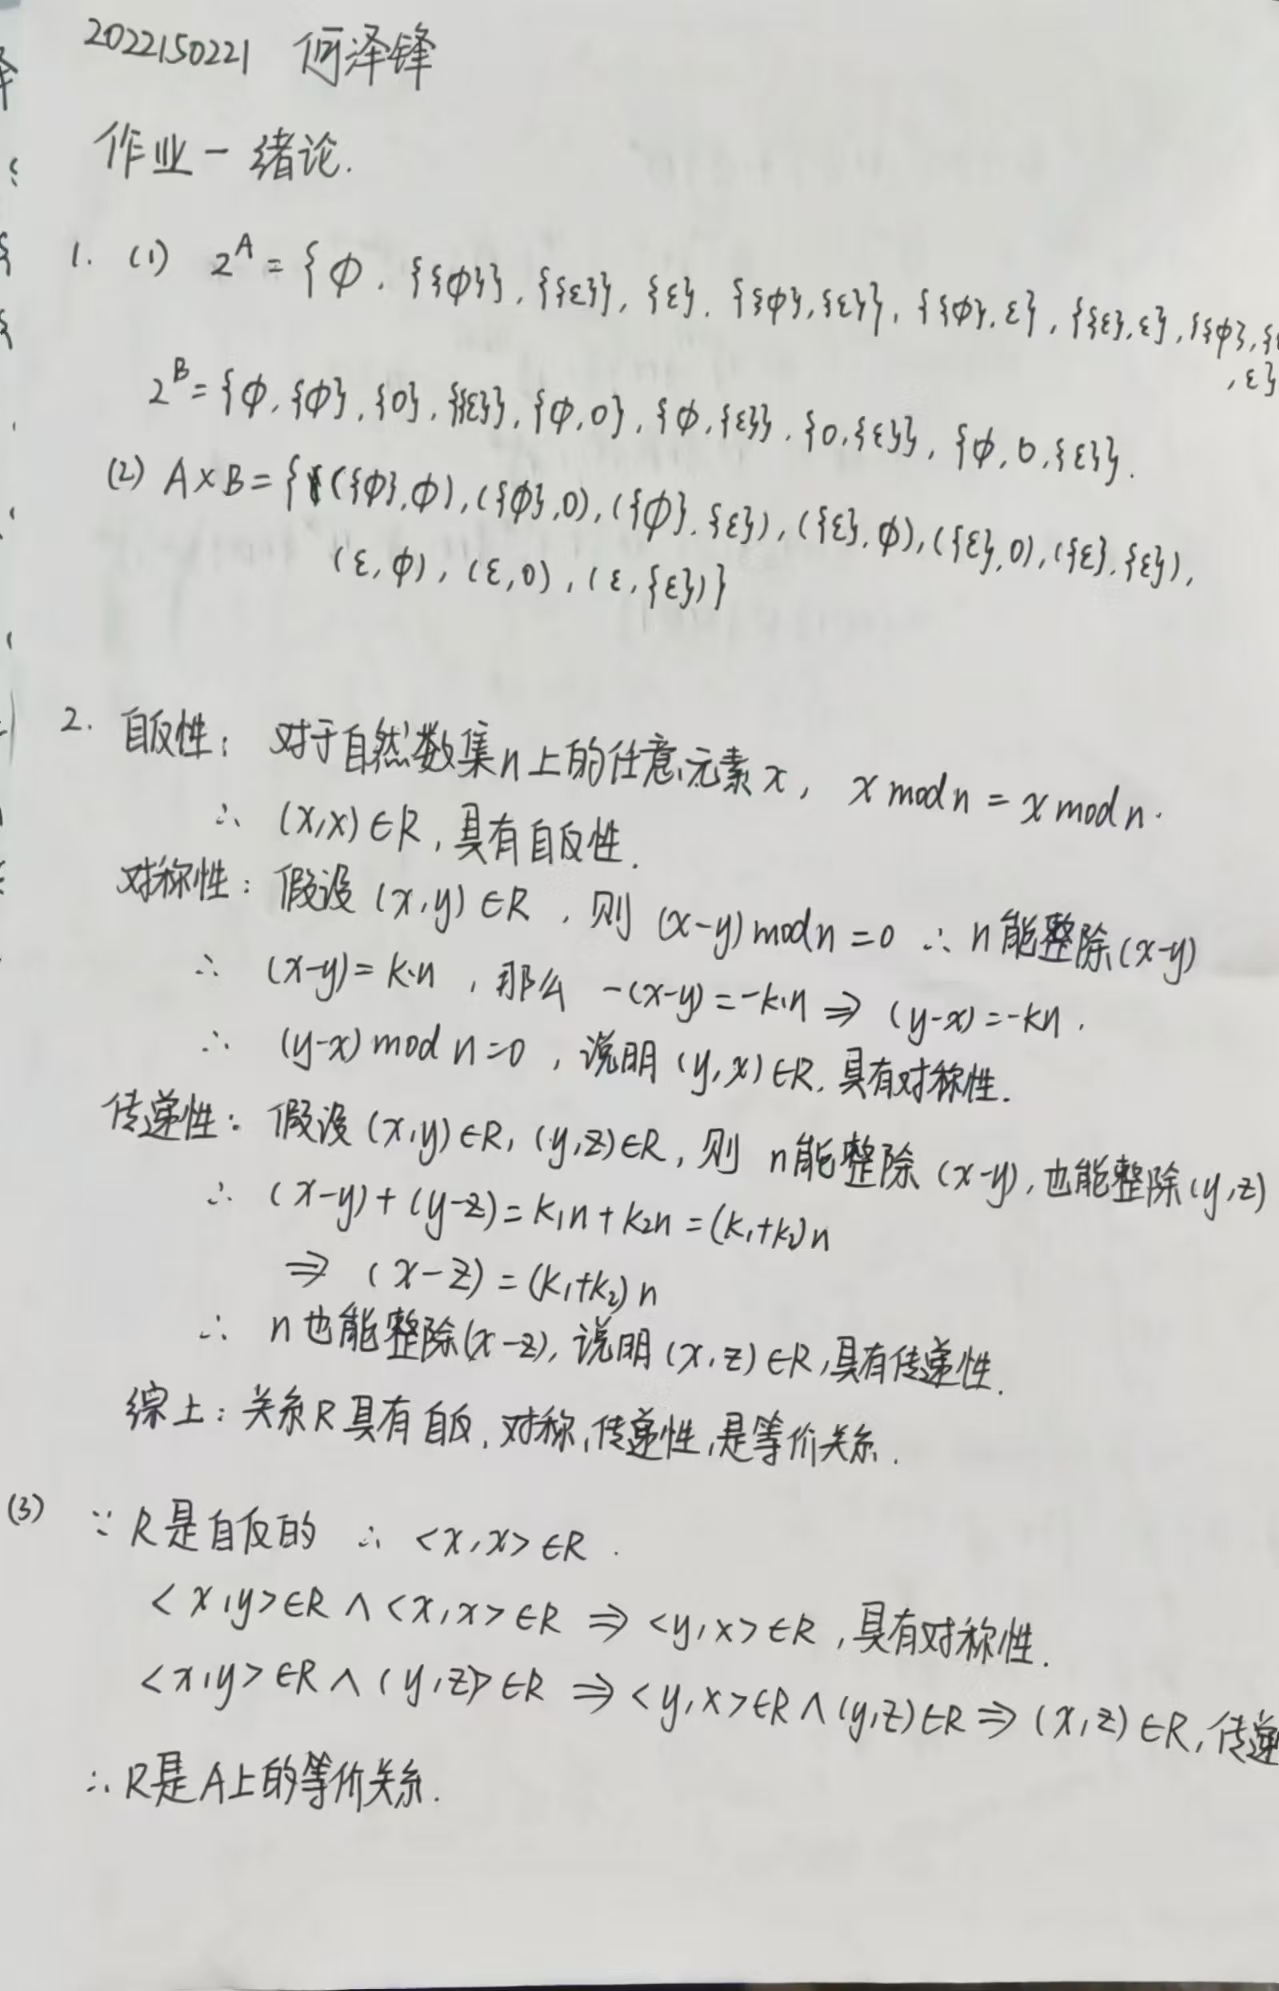 2022150221 何泽锋
作业一 绪论.
1. (1) 2^A = {φ, {{φ}}, {{ε}}, {ε}, {{φ},{ε}}, {{φ},ε}, {{ε},ε}, {{φ},{
,ε}
2^B = {φ, {φ}, {0}, {{ε}}, {φ,0}, {φ,{ε}}, {0,{ε}}, {φ,0,{ε}}.
(2) A×B = { ({φ},φ), ({φ},0), ({φ},{ε}), ({ε},φ), ({ε},0), ({ε},{ε}),
(ε,φ), (ε,0), (ε,{ε})}
2. 自反性: 对于自然数集n上的任意元素x, x mod n = x mod n.
∴ (x,x)∈R, 具有自反性.
对称性: 假设 (x,y)∈R, 则 (x-y) mod n = 0 ∴ n能整除(x-y)
∴ (x-y)= k·n, 那么 -(x-y)=-k·n ⇒ (y-x)=-kn.
∴ (y-x) mod n=0, 说明 (y,x)∈R, 具有对称性.
传递性: 假设 (x,y)∈R, (y,z)∈R, 则 n能整除 (x-y), 也能整除(y,z)
∴ (x-y)+(y-z)=k₁n+k₂n=(k₁+k₂)n
⇒ (x-z)=(k₁+k₂)n
∴ n也能整除(x-z), 说明 (x,z)∈R, 具有传递性.
综上: 关系R具有自反, 对称, 传递性, 是等价关系.
(3) ∵ R是自反的 ∴ <x,x>∈R.
<x,y>∈R ∧ <x,x>∈R ⇒ <y,x>∈R, 具有对称性.
<x,y>∈R ∧ (y,z>∈R ⇒ <y,x>∈R ∧ (y,z)∈R ⇒ (x,z)∈R, 传递
∴ R是A上的等价关系.